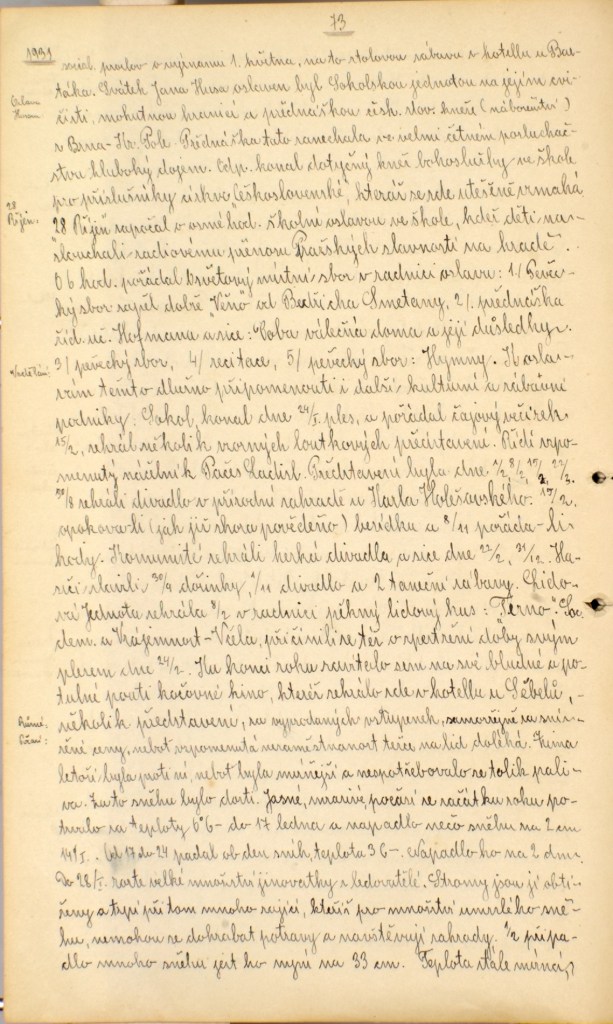 73
1931
sociál. proslov o významu 1. května, na to stolovou zábavu v hotellu u Bar-
táka. Svátek Jana Husa oslaven byl Sokolskou jednotou na jejím cvi-
Oslava
Husova
čišti, mohutnou hranicí a přednáškou čísk. slov. kněze (náboženství)
v Brna-Kr. Pole. Přednáška tato zanechala ve velmi četném posluchač-
stvu hluboký dojem. Odp. konal dotyčný kněz bohoslužby ve škole
pro příslušníky církve Československé, kteráž se zde utěšeně vzmahá
28
Říjen.
28 Říjen započal o osmé hod. školní oslavou ve škole, kdež děti na-
slouchali radiovému přenosu Pražských slavností na hradě.
O 6 hod. pořádal Osvětový místní sbor v radnici oslavu: 1./ Pěvec-
ký sbor zapěl dobře "Věno" od Bedřicha Smetany, 2/. přednáška
říd. uč. Hofmana a sice: "Doba válečná doma a její důsledky".
Vzdělání:
3/ pěvecký sbor, 4/ recitace, 5/ pěvecký sbor: Hymny. K osla-
vám těmto dlužno připomenouti i další kulturní a zábavní
podniky. Sokol, konal dne 24/I. ples, a pořádal čajový večírek
15/2, sehrál několik vzorných loutkových představení. Řídí vzpo-
menutý náčelník Pačes Ladisl. Představení byla dne
30/8 sehráli divadlo v přírodní zahradě u Karla Holešovského. 15/2.
opakova-li (jak již shora pověděno) besídku a 8/11 pořáda-li
hody. Komunisté sehráli herká divadla a sice dne 22/2, 31/12. Ha-
siči slavili 30/9 dožinky, 1/11 divadlo a 2 taneční zábavy. Lido-
vá Jednota sehrála 8/2 v radnici pěkný lidový kus: "Terno". Soc.
dem. a Vzájemnost-Včela, přičinili se též o zpestření doby svým
plesem dne 24/2. Ku konci roku zavítalo sem na své bludné a po-
tulné pouti kočovné kino, kteréž sehrálo zde v hotellu u Sébelů,-
několik představení, za vyprodaných vstupenek, samozřejmě za sní-
žené ceny, neboť vzpomenutá nezaměstnanost těžce na lid doléhá. Zima
letoší byla proti ní, neboť byla mírnější a nespotřebovalo se tolik pali-
va. Zato sněhu bylo dosti. Jasné, mrazivé, počasí se začátku roku po-
trvalo za teploty 6°C- do 17 ledna a napadlo něco sněhu na 2 cm
14/I.. Od 17 do 24 padal ob den sníh, teplota 3C-. Napadlo ho na 2 dm.
Do 28/I. roste velké množství jinovatky z ledovatělé. Stromy jsou jí obtí-
ženy a trpí při tom mnoho zajíci, kteříž pro množství umrzlého sně-
hu, nemohou se dohrabat potravy a navštěvují zahrady. 1/2 připa-
dlo mnoho sněhu jest ho nyní na 33 cm. Teplota stále mírná,